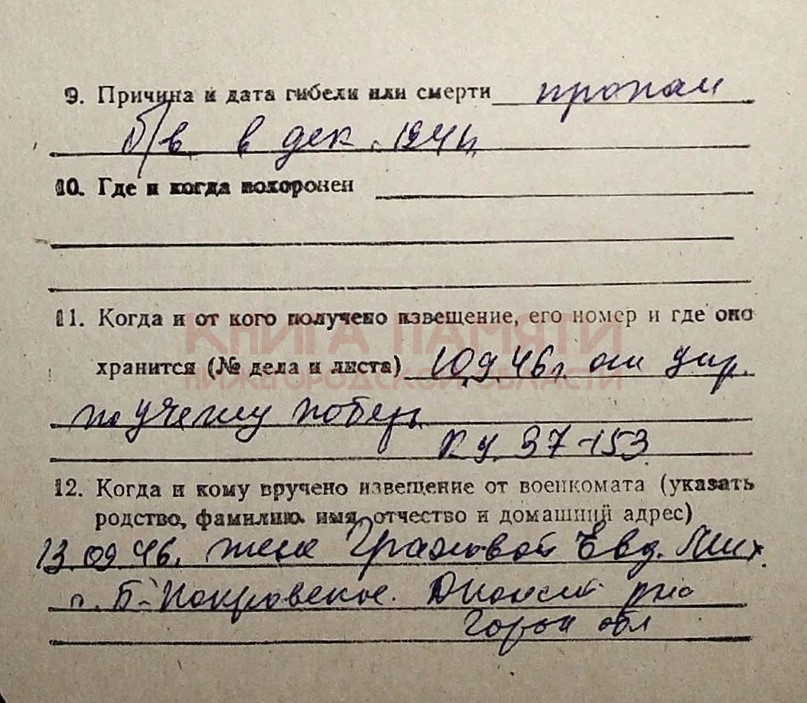 9. Причина и дата гибели или смерти пропал
б/в. в дек. 1941г
10. Где и когда похоронен
11. Когда и от кого получено извещение, его номер и где оно
КНИГА ПАМЯТИ
хранится (№ дела и листа) 10.9.46г от упр.
НИЖЕГОРОДСКОЙ ОБЛАСТИ
по учету потерь
97-153
12. Когда и кому вручено извещение от военкомата (указать
родство, фамилию, имя, отчество и домашний адрес)
13.09.46. жене Евд. Мих.
с. Б-Покровское. р-на
обл